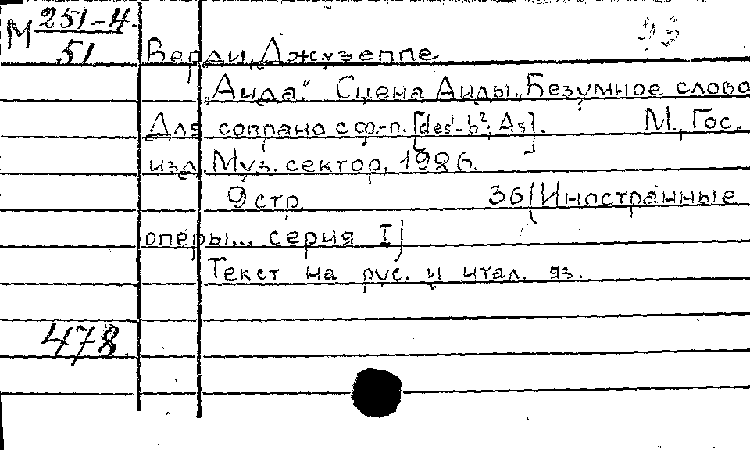 М 251-4 93
51 Верди, Джузеппе.
„Аида". Сцена Аиды „Безумное слово
Для сопрано с ф-п. [des¹-b²; As]. М., Гос.
изд. Муз. сектор, 1926.
9 стр. 36 (Иностранные
оперы... серия I)
Текст на рус. и итал. яз.
478